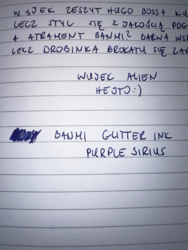 WUJEK ZESZYT HUGO BOSSA
LECZ STYL SIĘ Z JAKOŚCIĄ
A ATRAMENT BARWA
LECZ DROBINKA BROKATU SIĘ
WUJEC ALIEN
HEJTO:)
GLITTER INK
PURPLE SIRIUS